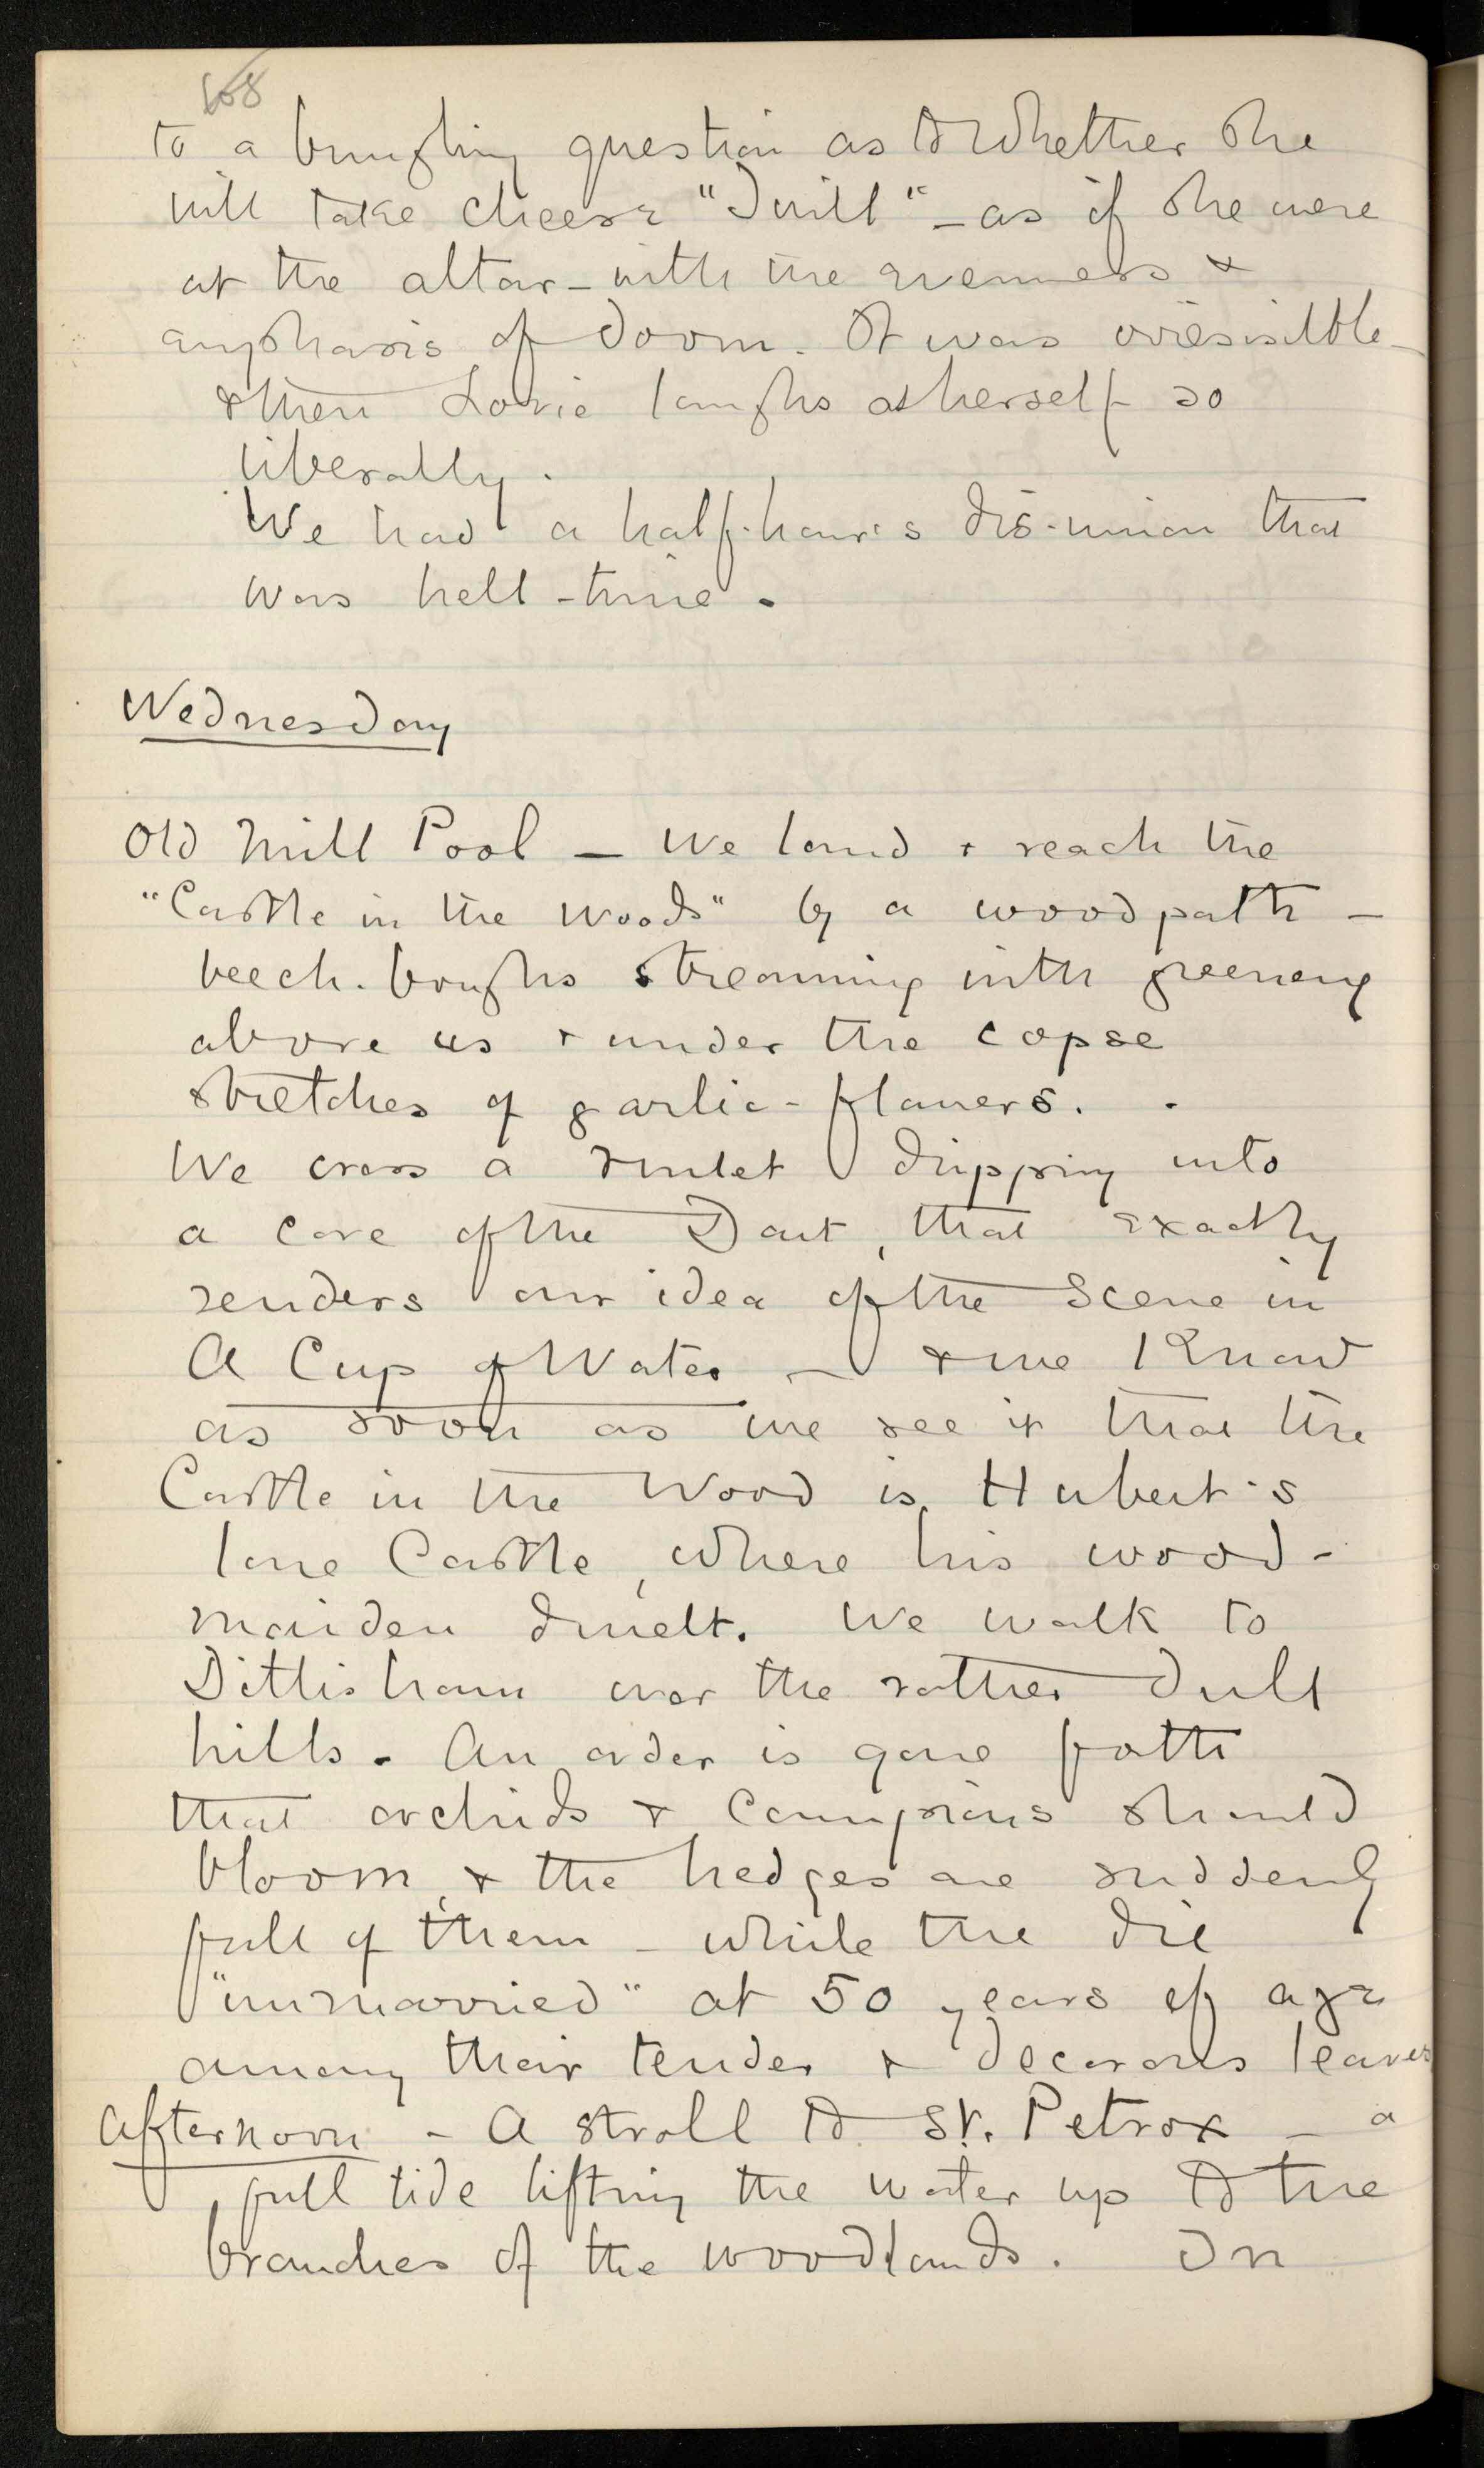 108
to a bungling question as to whether she
will take cheese "I will" – as if she were
at the altar – with the evenness &
emphasis of doom. It was irresistible –
& then Louie laughs at herself so
liberally.
We had a half-hour's dis-union that
was hell-time.
Wednesday
Old Mill Pool – We land & reach the
"Castle in the Woods" by a wood path –
beech-boughs streaming with greenery
above us & under the copse
stretches of garlic-flowers.
We cross a runlet dripping into
a cove of the Dart, that exactly
renders our idea of the Scene in
A Cup of Water – & we know
as soon as we see it that the
Castle in the Wood is Hubert's
lone Castle, where his wood-
maiden dwelt. We walk to
Dittisham over the rather dull
hills. An order is gone forth
that orchids & campions should
bloom, & the hedges are suddenly
full of them – while the die
"unmarried" at 50 years of age
among their tender & decorous leaves
Afternoon – A stroll to St. Petrox – a
full tide lifting the water up to the
branches of the woodlands. In